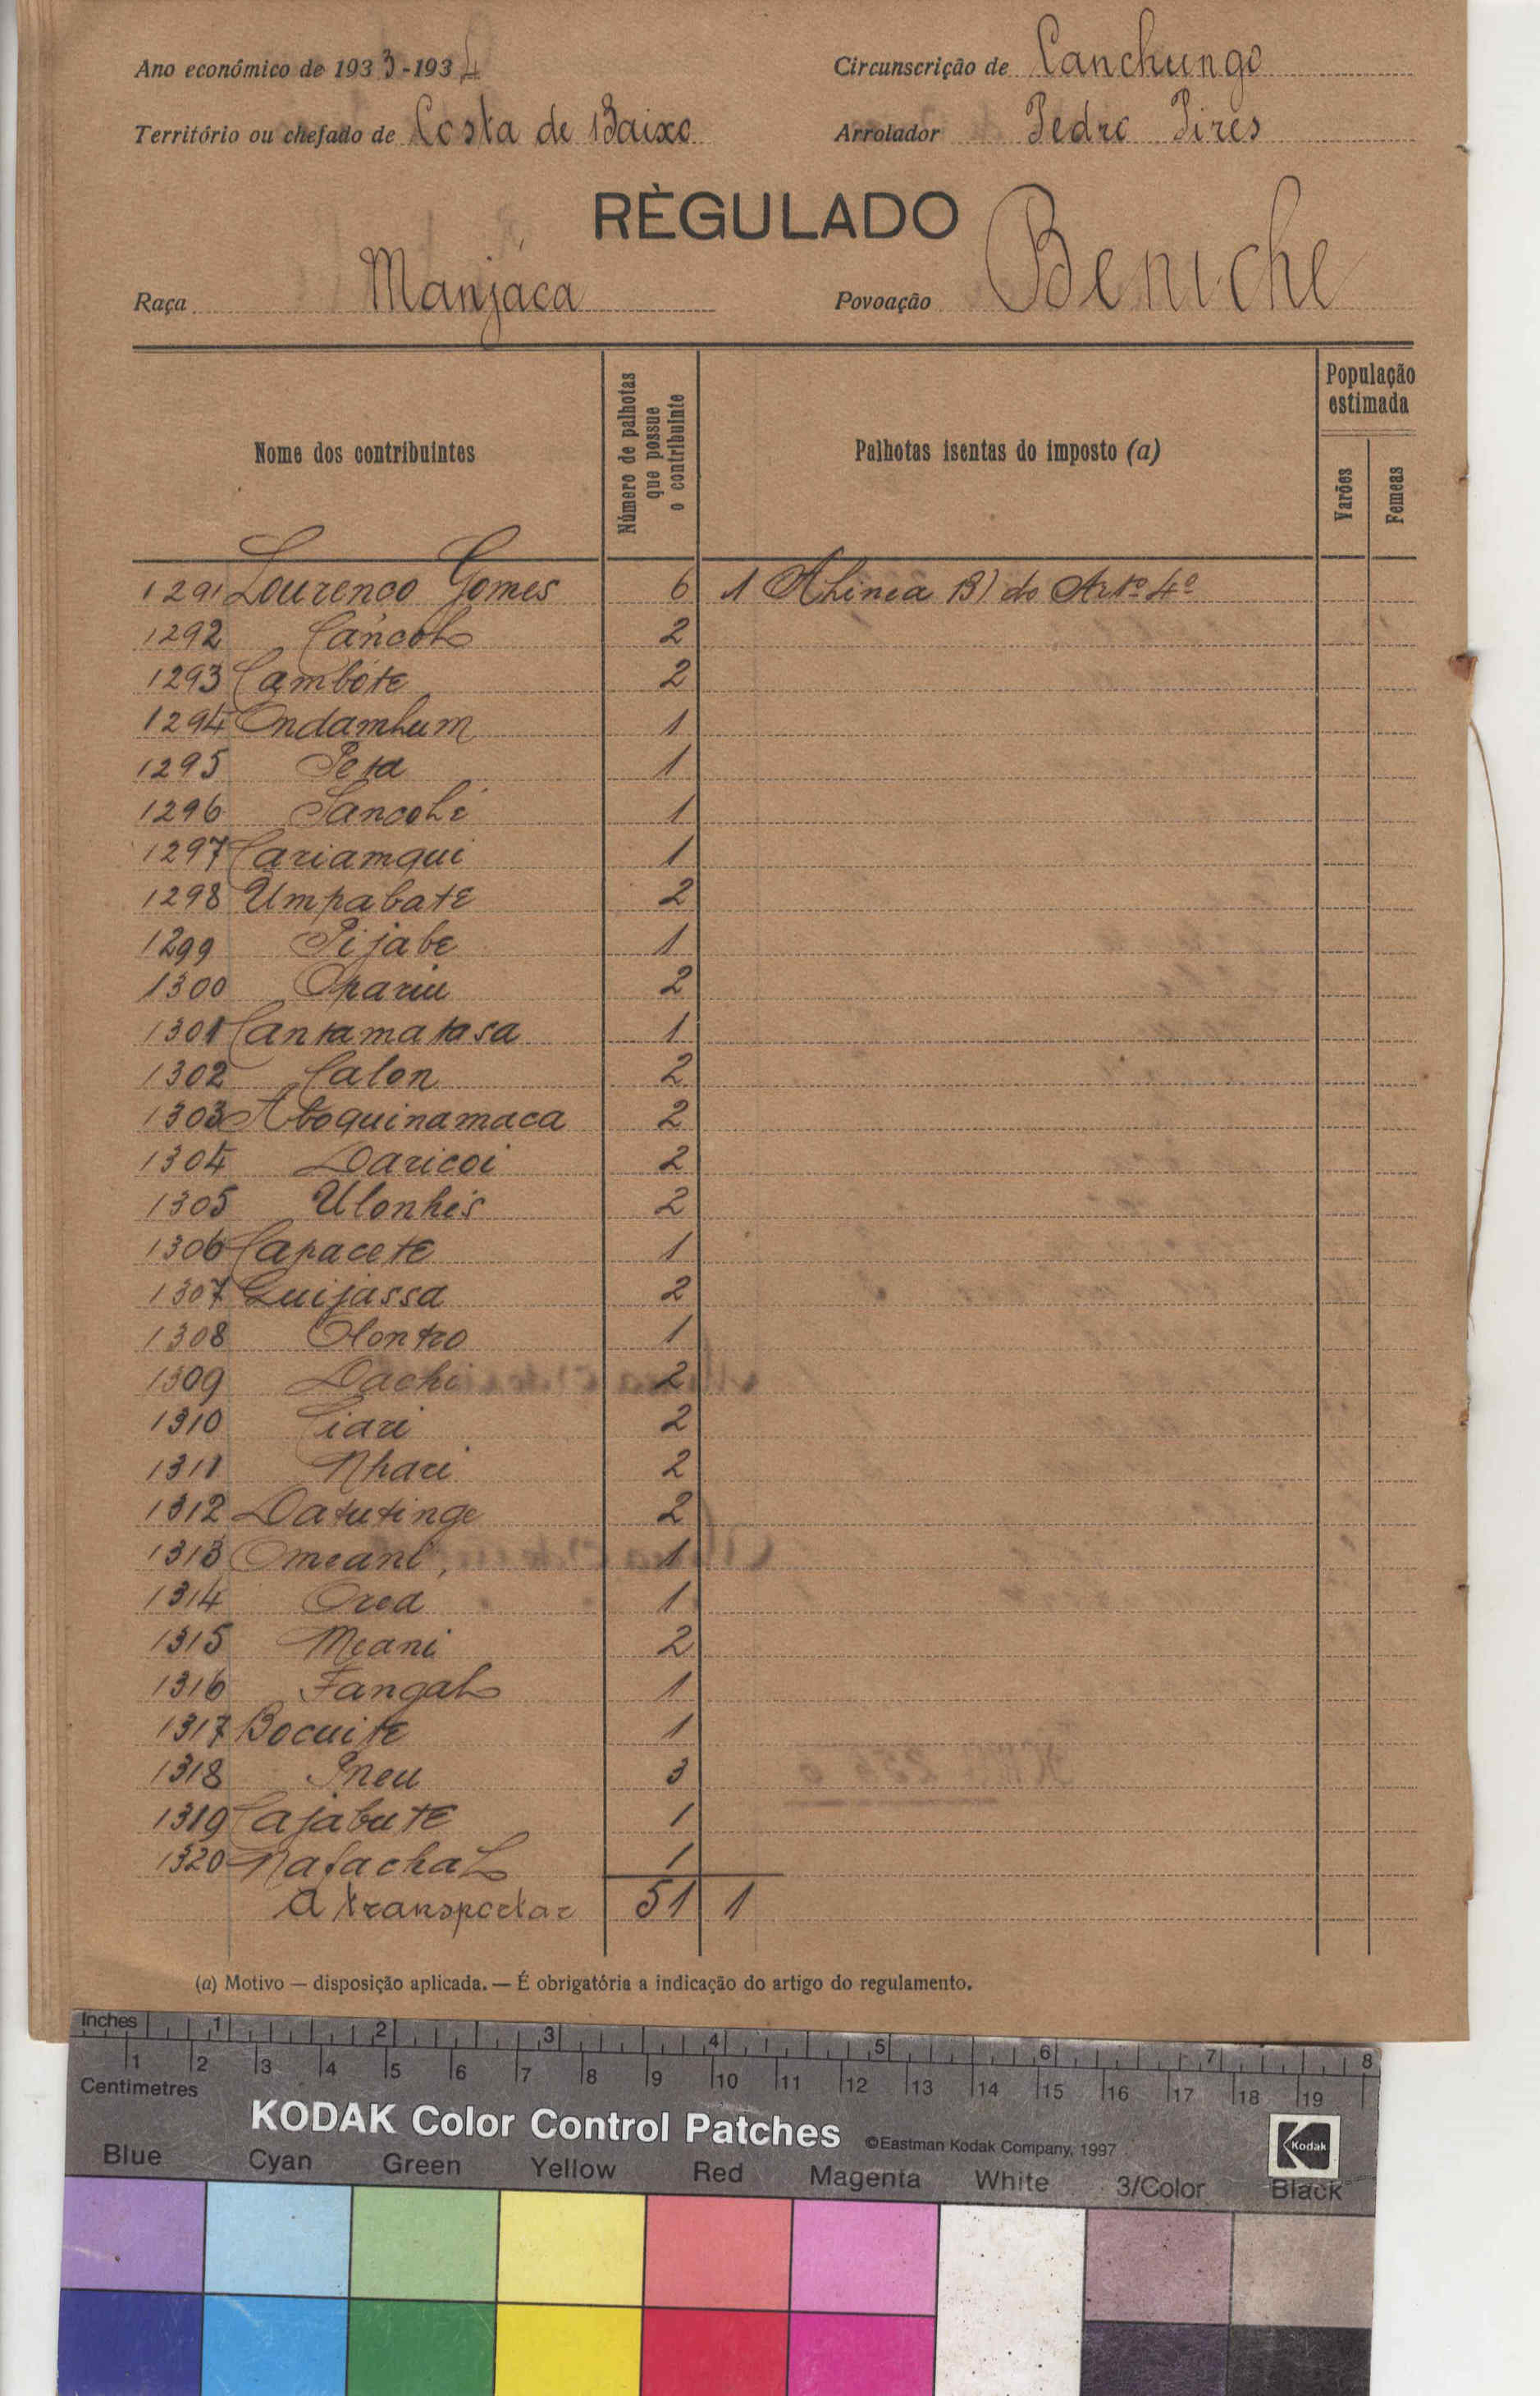 Ano económico de 1933-1934
Circunscrição de Canchungo
Território ou chefado de Costa de Baixo
Arrolador Pedro Pires
RÈGULADO
Raça Manjáca
Povoação Beniche
Nome dos contribuintes
Número de palhotas que possue o contribuinte
Palhotas isentas do imposto (a)
População estimada
Varões
Femeas
1291 Lourenco Gomes 6 1 Alinea B) do Artº 4º
1292 Cáncol 2
1293 Cambóte 2
1294 Ondamhum 1
1295 Peta 1
1296 Sancolé 1
1297 Cariamqui 1
1298 Umpabate 2
1299 Pijabe 1
1300 Opariu 2
1301 Cantamatasa 1
1302 Calon 2
1303 Atoquinamaca 2
1304 Daricoi 2
1305 Ulonhis 2
1306 Capacete 1
1307 Guijassa 2
1308 Olontro 1
1309 Dachi 2
1310 Ciari 2
1311 Nhari 2
1312 Datutinge 2
1313 Omeani 1
1314 Ored 1
1315 Meani 2
1316 Fangal 1
1317 Bocuite 1
1318 Pneu 3
1319 Cajabute 1
1320 Nafachal 1
A transportar 51 1
(a) Motivo — disposição aplicada. — É obrigatória a indicação do artigo do regulamento.
Inches 1 2 3 4 5 6 7 8
1 2 3 4 5 6 7 8 9 10 11 12 13 14 15 16 17 18 19
Centimetres
KODAK Color Control Patches ©Eastman Kodak Company, 1997 Kodak
Blue Cyan Green Yellow Red Magenta White 3/Color Black